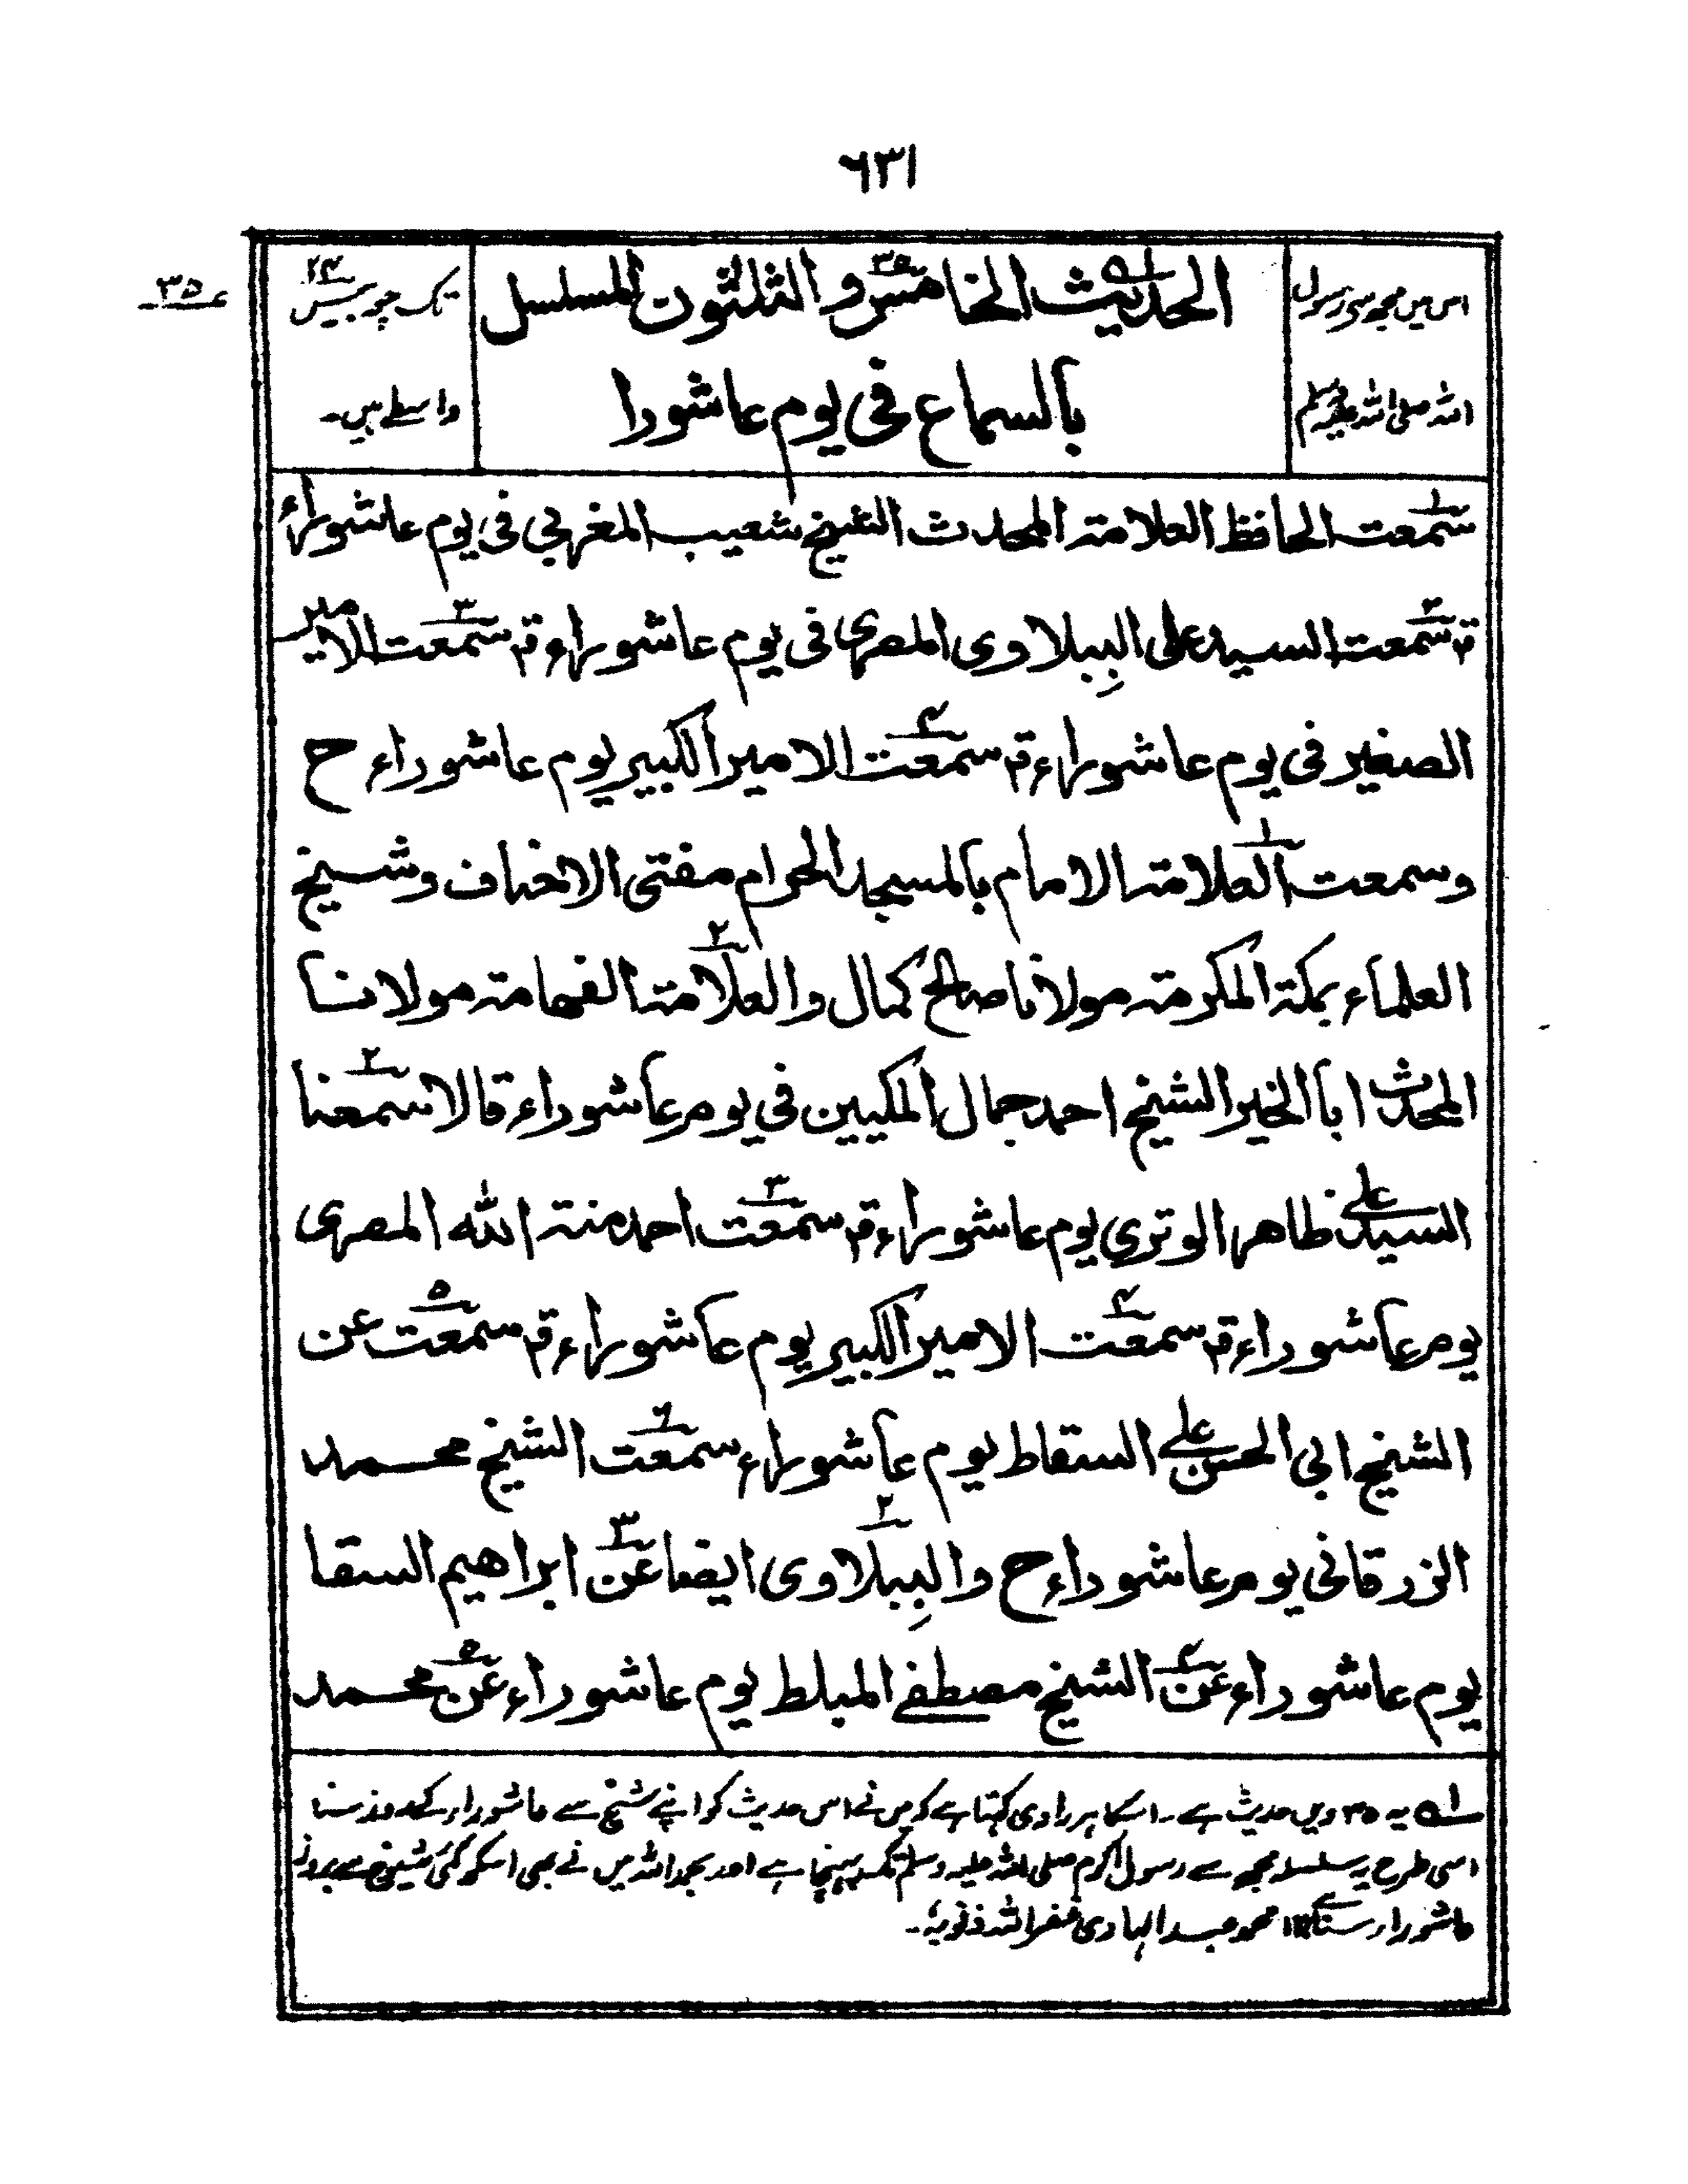 ٦٣١
اس میں مجھ سے رسول
اللہ صلی اللہ علیہ وسلم
الحدیث الخامس و الثلثون المسلسل
بالسماع فی یوم عاشورا
تک چوبیس ٢٤
واسطے ہیں۔
ع٣٥
سمعت الحافظ العلامۃ المحدث الشیخ شعیب المغربی فی یوم عاشوراء
قم سمعت السید علی الببلاوی المصری فی یوم عاشوراء قم سمعت الامیر
الصغیر فی یوم عاشوراء قم سمعت الامیر الکبیر یوم عاشوراء ح
وسمعت العلامۃ الامام بالمسجد الحرام مفتی الاحناف وشیخ
العلماء بمکۃ المکرمۃ مولانا صالح کمال والعلامۃ الفھامۃ مولانا
المحدث ابا الخیر الشیخ احمد جمال المکیین فی یوم عاشوراء قالا سمعنا
السید علی طاھر الوتری یوم عاشوراء قم سمعت احمد منۃ اللہ المصری
یوم عاشوراء قم سمعت الامیر الکبیر یوم عاشوراء قم سمعت عن
الشیخ ابی الحسن علی السقاط یوم عاشوراء سمعت الشیخ محمد
الزرقانی یوم عاشوراء ح والببلاوی ایضا عن ابراھیم السقا
یوم عاشوراء عن الشیخ مصطفے المبلط یوم عاشوراء عن محمد
لہ یہ ٣٥ ویں حدیث ہے۔ اسکا ہر راوی کہتا ہے کہ میں نے اس حدیث کو اپنے شیخ سے عاشوراء کے روز سنا
اسی طرح یہ سلسلہ مجھ سے رسول اکرم صلی اللہ علیہ وسلم تک پہنچا ہے اور بحمد اللہ میں نے بھی اسکو کئی شیوخ سے بروز
عاشوراء سنا ہے ١٢ محمد عبد الہادی غفر اللہ ذنوبہ۔